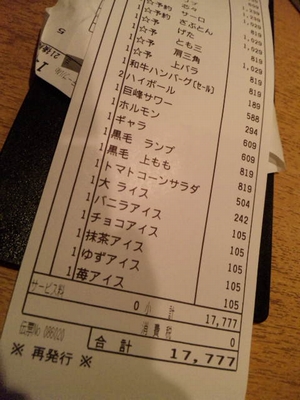 1 ☆予約 サーロ 1,029
1 ☆予約 ざぶとん 819
1 ☆予 げた 819
1 ☆予 とも三 1,029
1 ☆予 肩三角 819
1 ☆予 上バラ 819
1 和牛ハンバーグ(セール) 189
2 ハイボール 588
1 巨峰サワー 294
1 ホルモン 609
1 ギャラ 609
1 黒毛 ランプ 819
1 黒毛 上もも 819
1 トマトコーンサラダ 504
1 大 ライス 242
1 バニラアイス 105
1 チョコアイス 105
1 抹茶アイス 105
1 ゆずアイス 105
1 苺アイス 105
サービス料 0 小 計 17,777
消費税 0
伝票No 086020 合 計 17,777
※ 再発行 ※